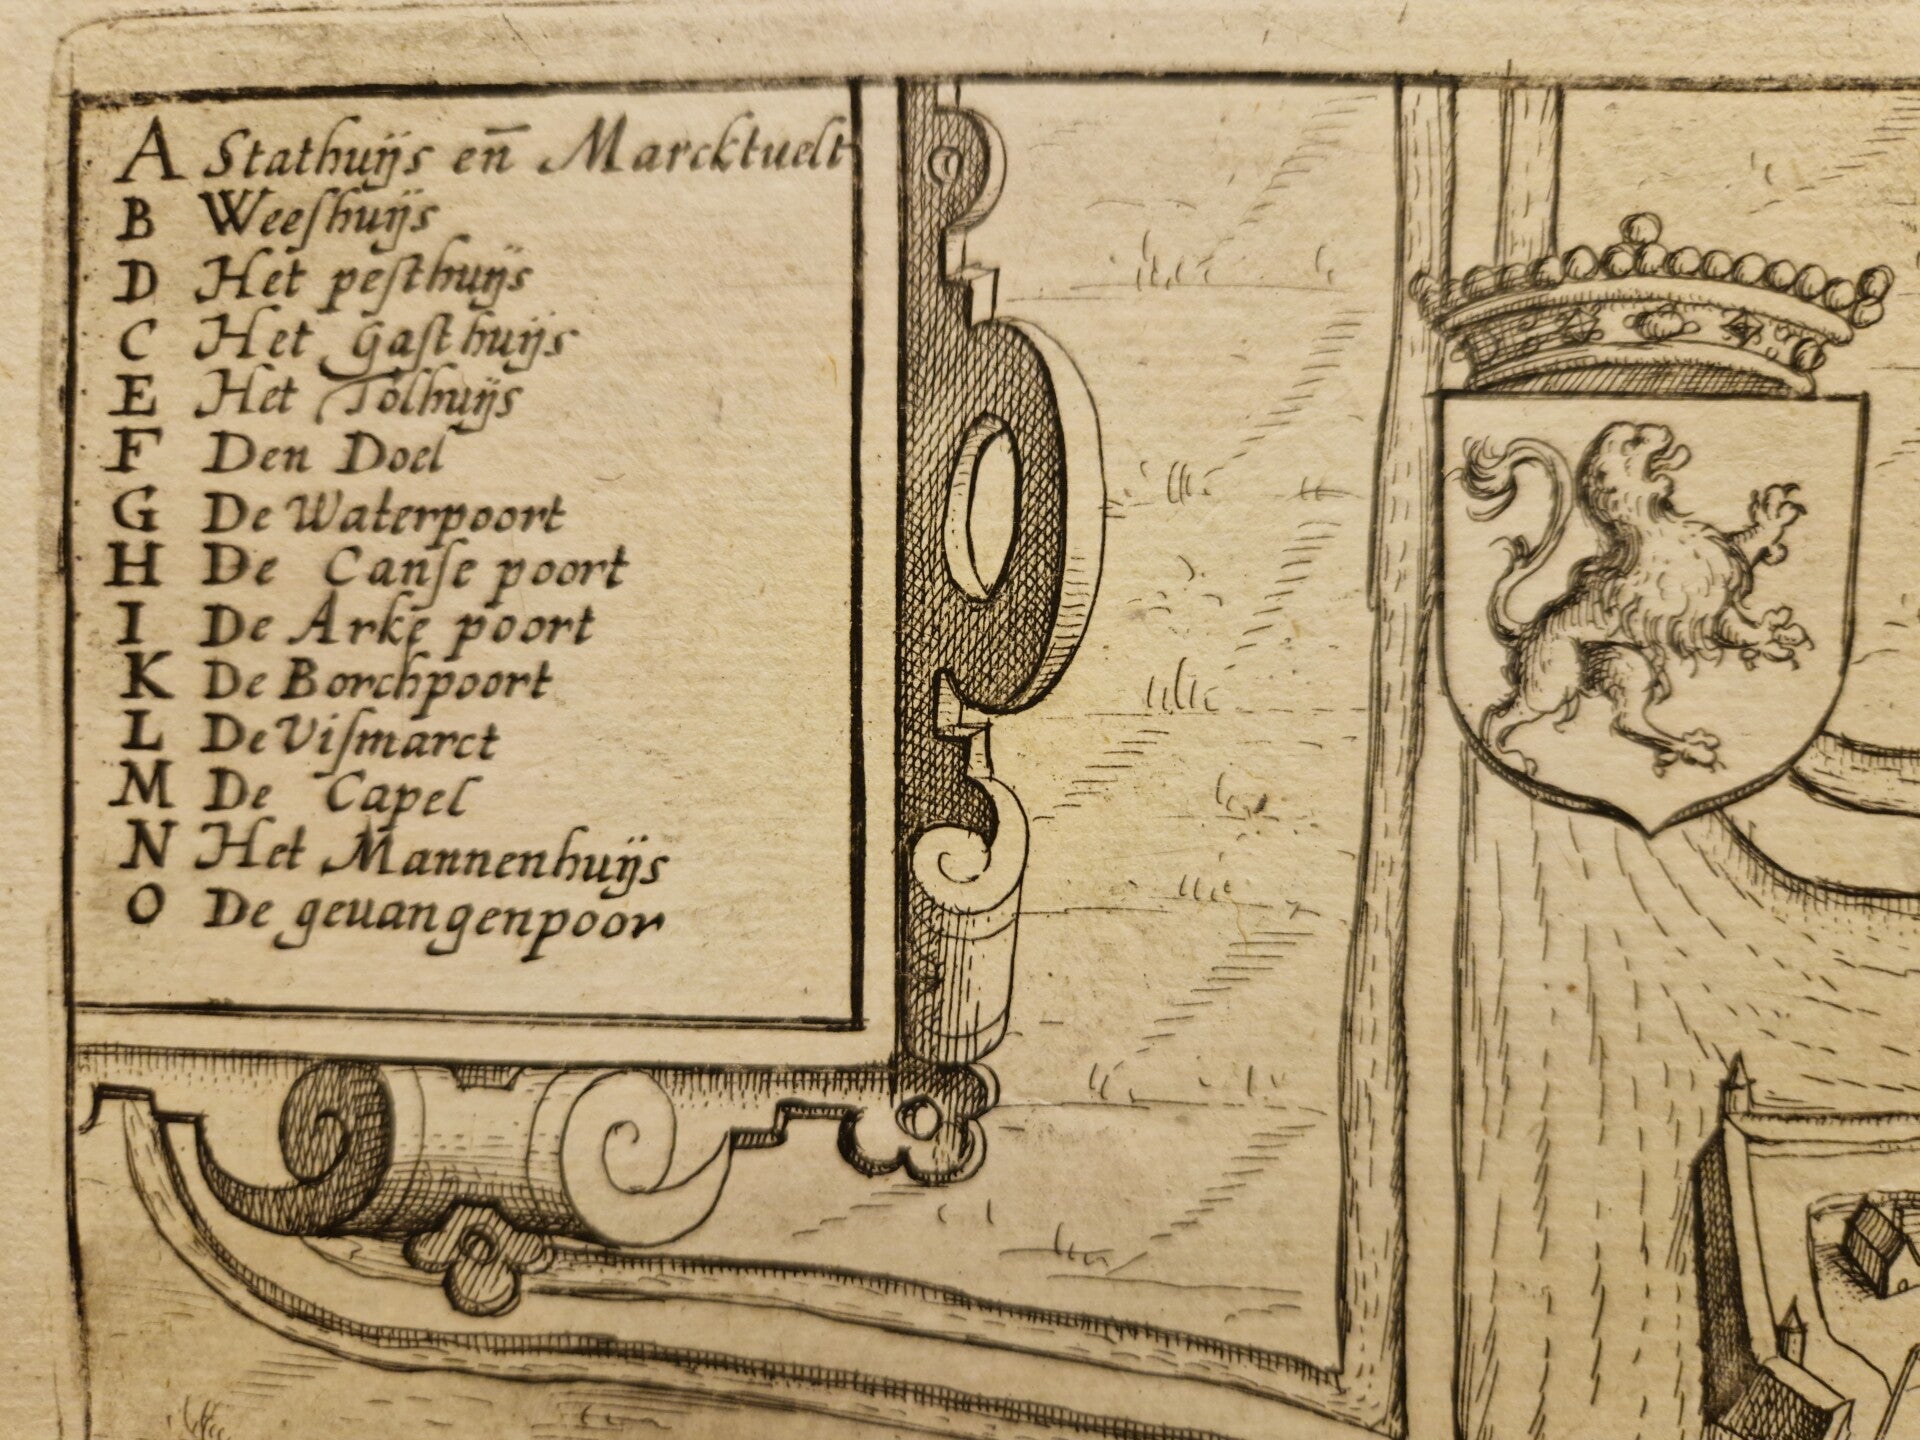 A Stathuijs en̄ Marcktuelt
B Weeſhuijs
D Het peſthuijs
C Het gaſthuijs
E Het Tolhuijs
F Den Doel
G De Waterpoort
H De Canſe poort
I De Arke poort
K De Borchpoort
L De Viſmarct
M De Capel
N Het Mannenhuijs
O De geuangenpoor